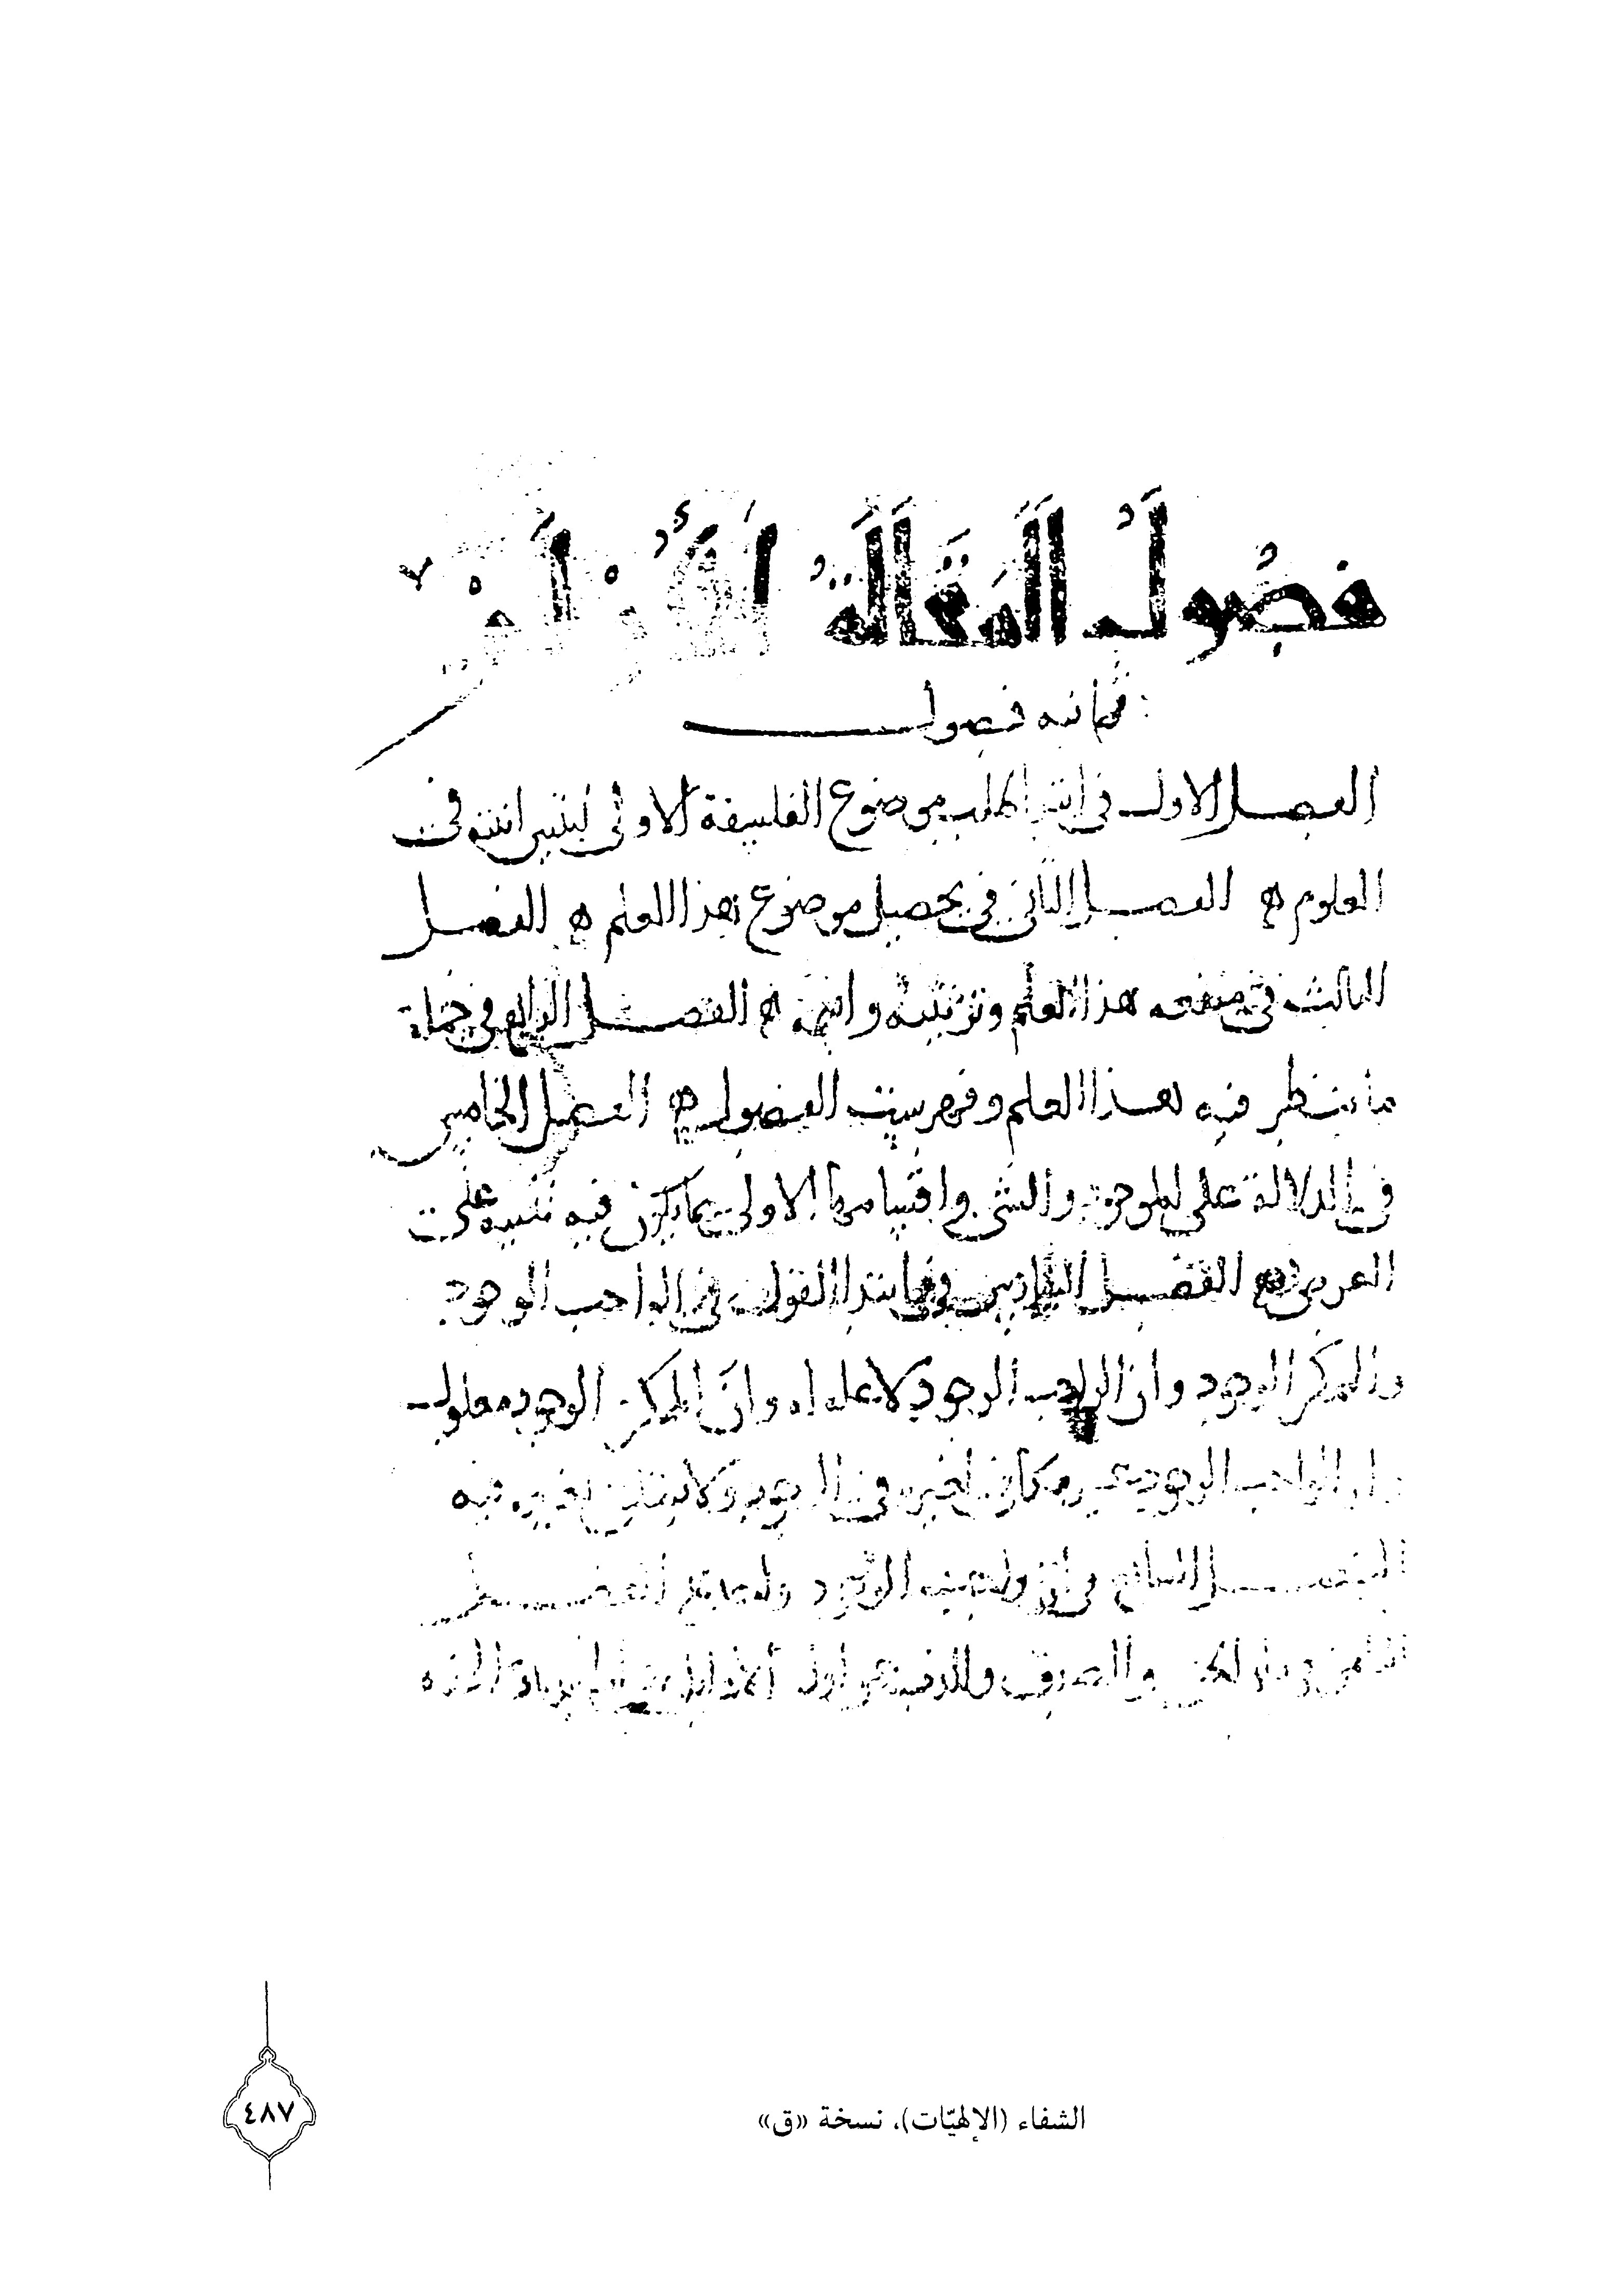 فصُولُ المَقَالَةُ الأُولَى
ثمانيه فصول
الفصل الاول في ابتدا طلب موضوع الفلسفة الاولى لتتبين انيته في
العلوم ه الفصل الثاني في تحصيل موضوع هذا العلم ه الفصل
الثالث في منفعه هذا العلم وترتيبه واسمه ه الفصل الرابع في جملة
ما ينظر فيه هذا العلم وفهرست الفصول ه الفصل الخامس
في الدلالة على الموجود والشي واقسامها الاولى بما يكون فيه تنبيه على
الغرض ه الفصل السادس في ابتدا القول في الواجب الوجود
والممكن الوجود وان الواجب الوجود لا عله له وان الممكن الوجود معلول
وان الواجب الوجود غير مكافى لغيره في الوجود ولا متعلق بغيره فيه
الفصل السابع في ان واجب الوجود واحد الفصل
الثامن في بيان الحق والصدق والذب عن اول الاقاويل
الشفاء (الإلهيّات)، نسخة «ق»
٤٨٧